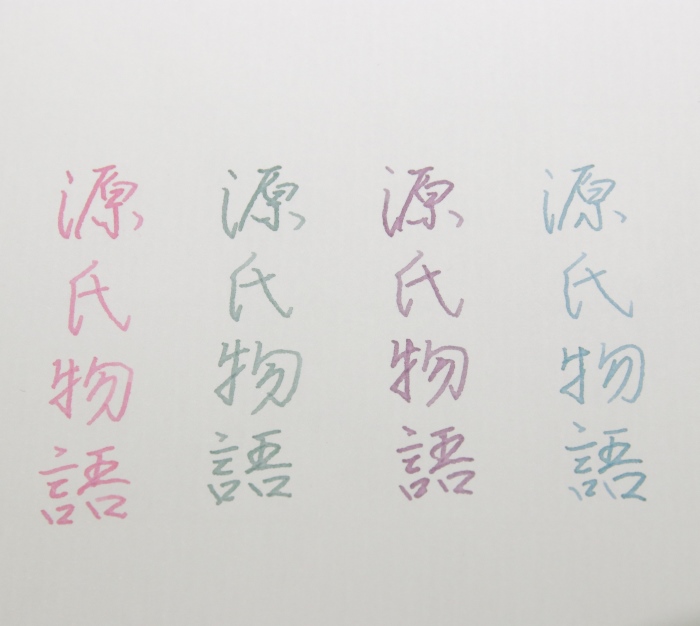 源氏物語
源氏物語
源氏物語
源氏物語